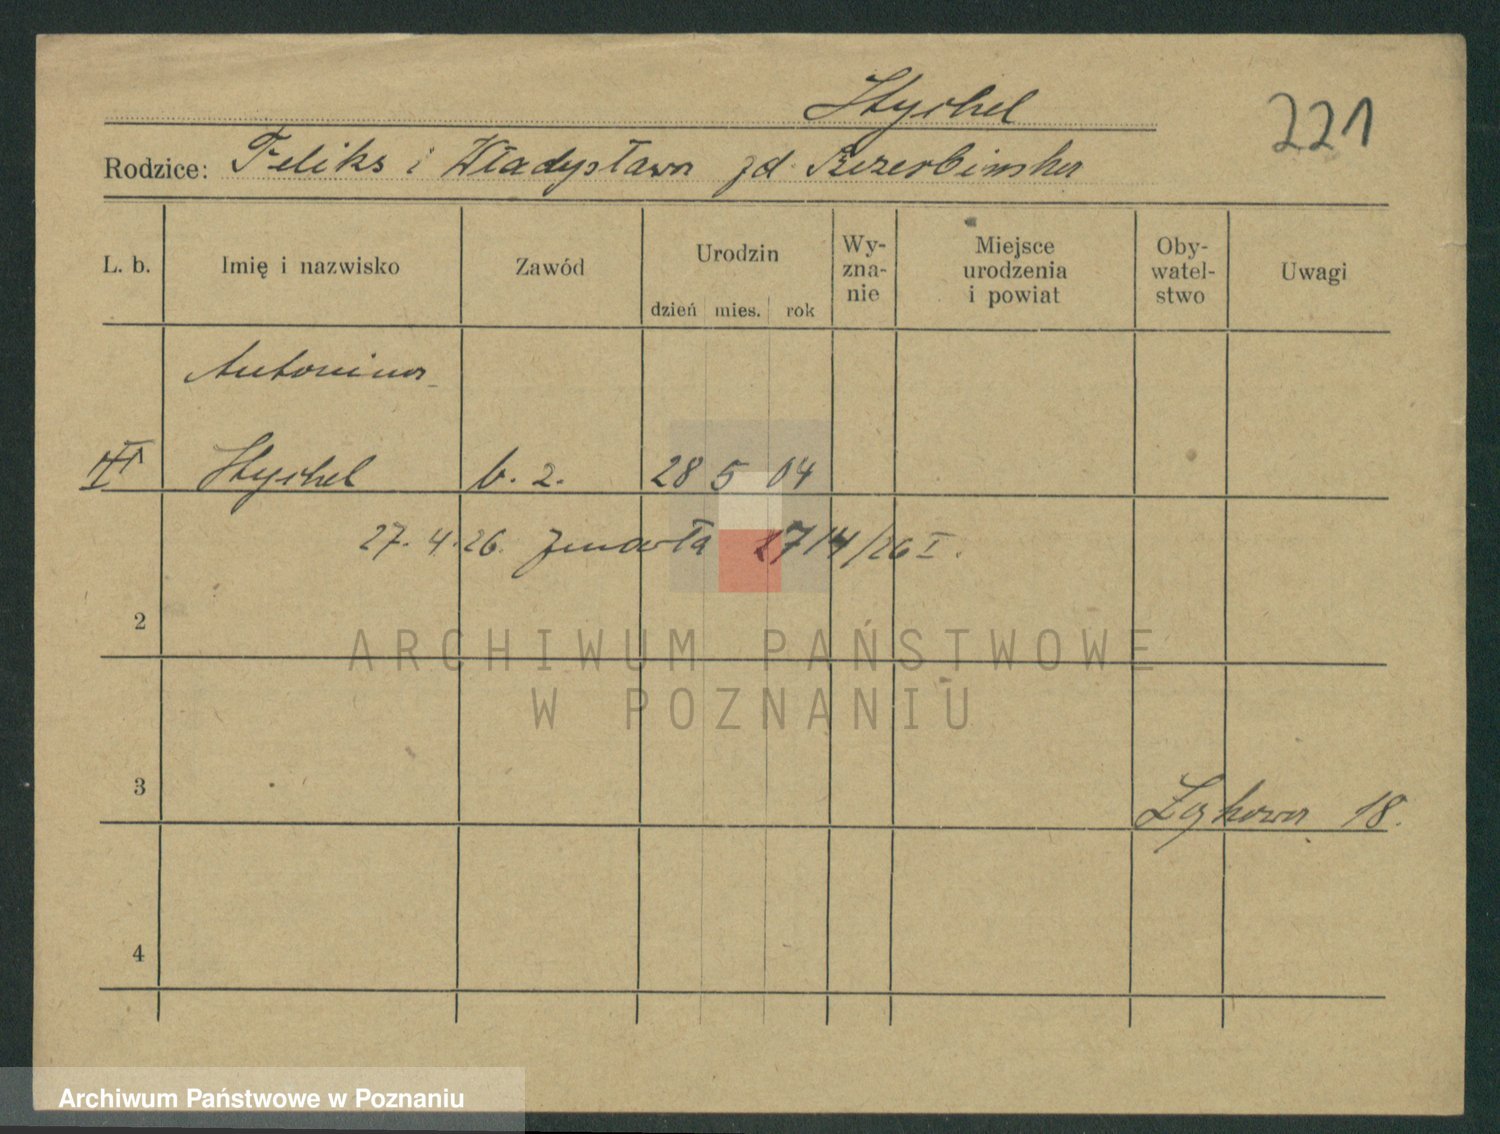 Stychel
221
Rodzice: Feliks i Władysława zd. Szczerbińska
L. b. Imię i nazwisko Zawód Urodzin dzień mies. rok Wy-zna-nie Miejsce urodzenia i powiat Oby-watel-stwo Uwagi
Antonina
Stychel b. z. 28 5 04
27. 4. 26. zmarła 27/4/26 I.
2
ARCHIWUM PAŃSTWOWE
W POZNANIU
3
Łąkowa 18.
4
Archiwum Państwowe w Poznaniu